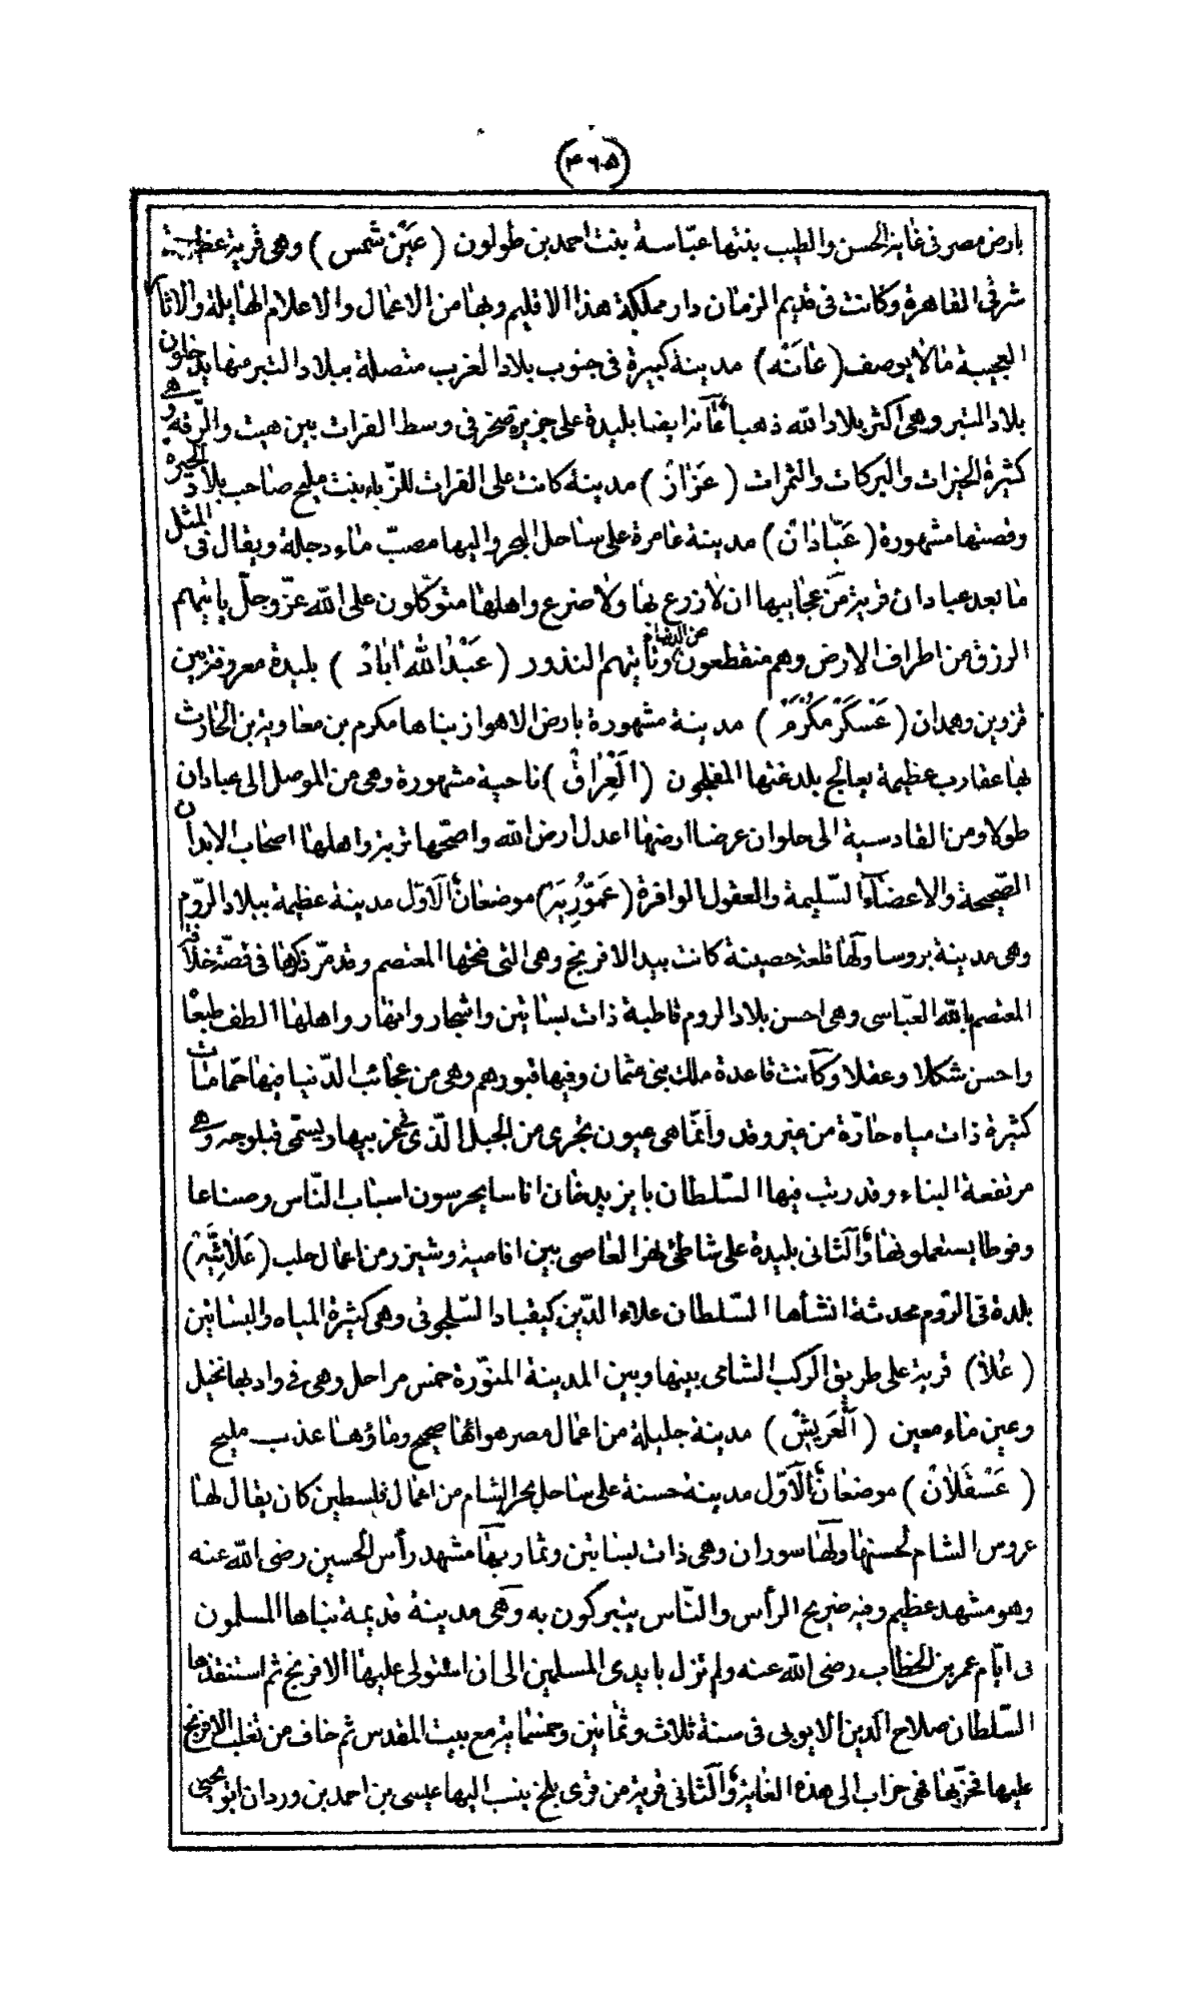 (٤٦٥)
بارض مصر فى غاية الحسن والطيب بنتها عبّاسة بنت احمد بن طولون (عَيْن شمس) وهى قرية عظيمة
شرقى القاهرة وكانت فى قديم الزمان دار مملكة هذا الاقليم وبها من الاعمال والاعلام الهايلة والاثار
العجيبة مالا يوصف (غانَه) مدينة كبيرة فى جنوب بلاد الغرب متصلة ببلاد التبر منها يدخلون
بلاد التبر وهى اكثر بلاد الله ذهبا عانة ايضا بليدة على جزيرة صخر فى وسط الفرات بين هيت والرّقة وهى
كثيرة الخيرات والبركات والثمرات (عَزَازْ) مدينة كانت على الفرات للزّباء بنت مليح صاحب بلاد الحيرة
وقصتها مشهورة (عَبّادَان) مدينة عامرة على ساحل البحر واليها مصبّ ماء دجلة ويقال فى المثل
ما بعد عبادان قرية من عجايبها ان لا زرع لها ولا ضرع واهلها متوكّلون على الله عزّ وجلّ ياتيهم
الرزق من اطراف الارض وهم منقطعون عن الدنيا وتأتيهم النذور (عَبْدُ الله اٰبَادْ) بليدة معروفة بين
قزوين وهمدان (عَسْكَرْ مُكْرَمْ) مدينة مشهورة بارض الاهواز بناها مكرم بن معاوية بن الحارث
بها عقارب عظيمة يعالج بلدغتها المفلجون (اَلْعِراقْ) ناحية مشهورة وهى من الموصل الى عبادان
طولا ومن القادسية الى حلوان عرضا ارضها اعدل ارض الله واصحّها تربة واهلها اصحاب الابدان
الصّحيحة والاعضاء السّليمة والعقول الوافرة (عَمّوُرِيَة) موضعان الاوّل مدينة عظيمة ببلاد الرّوم
وهى مدينة بروسا ولها قلعة حصينة كانت بيد الافرنج وهى التى فتحها المعتصم وقد مرّ ذكرها فى قصّة خلافة
المعتصم بالله العبّاسى وهى احسن بلاد الروم قاطبة ذات بساتين واشجار وانهار واهلها الطف طبعًا
واحسن شكلا وعقلا وكانت قاعدة ملك بنى عثمان وفيها قبورهم وهى من عجائب الدّنيا فيها حمّامات
كثيرة ذات مياه حارّة من غير وقد وانّما هى عيون تجرى من الجبل الّذى غربيها ويسمّى قبلوجه وهى
مرتفعة البناء وقد رتب فيها السّلطان بايزيد خان اناسا يحرسون اسباب النّاس وصناعا
وفوطا يستعملونها والثانى بليدة على شاطئ نهر العاصى بين افامية وشيزر من اعمال حلب (عَلاٰئِيَّة)
بلدة فى الرّوم محدثة انشأها السّلطان علاء الدّين كيقباد السّلجوقى وهى كثيرة المياه والبساتين
(عُلاٰ) قرية على طريق الركب الشامى بينها وبين المدينة المنوّرة خمس مراحل وهى فى واد بها نخيل
وعين ماء معين (اَلْعَريشْ) مدينة جليلة من اعمال مصر هوائها صحيح وماؤها عذب مليح
(عَسْقَلاٰنْ) موضعان الاوّل مدينة حسنة على ساحل بحر الشام من اعمال فلسطين كان يقال لها
عروس الشام لحسنها ولها سوران وهى ذات بساتين وثمار بها مشهد رأس الحسين رضى الله عنه
وهو مشهد عظيم وفيه ضريح الرأس والنّاس يتبركون به وهى مدينة قديمة بناها المسلمون
فى ايّام عمر بن الخطاب رضى الله عنه ولم تزل بايدى المسلمين الى ان استولى عليها الافرنج ثم استنقذها
السّلطان صلاح الدين الايوبى فى سنة ثلاث وثمانين وخمسماية مع بيت المقدس ثم خاف من تغلب الافرنج
عليها فخرّبها فهى خراب الى هذه الغاية والثانى قرية من قرى بلخ ينسب اليها عيسى بن احمد بن وردان ابو يحيى